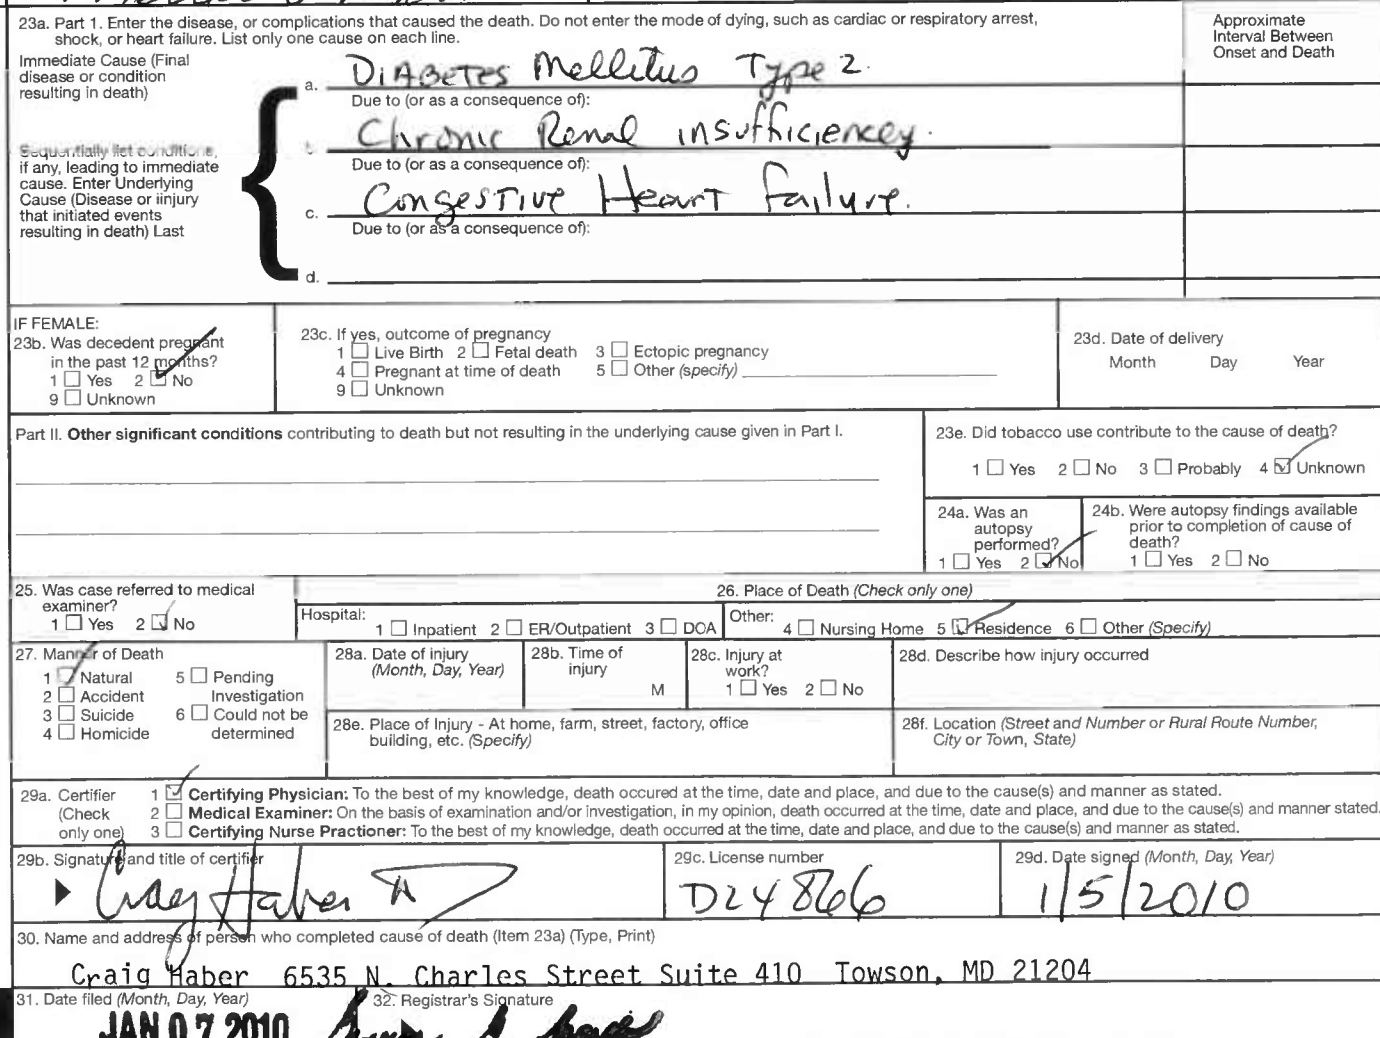 23a. Part 1. Enter the disease, or complications that caused the death. Do not enter the mode of dying, such as cardiac or respiratory arrest,
shock, or heart failure. List only one cause on each line.
Approximate
Interval Between
Onset and Death
Immediate Cause (Final
disease or condition
resulting in death)
a. Diabetes Mellitus Type 2.
Due to (or as a consequence of):
Chronic Renal insufficiencey.
Sequentially list conditions,
if any, leading to immediate
cause. Enter Underlying
Cause (Disease or iinjury
that initiated events
resulting in death) Last
Due to (or as a consequence of):
c. Congestive Heart Failure.
Due to (or as a consequence of):
d.
IF FEMALE:
23b. Was decedent pregnant
in the past 12 months?
1 ☐ Yes 2 ☑ No
9 ☐ Unknown
23c. If yes, outcome of pregnancy
1 ☐ Live Birth 2 ☐ Fetal death 3 ☐ Ectopic pregnancy
4 ☐ Pregnant at time of death 5 ☐ Other (specify)
9 ☐ Unknown
23d. Date of delivery
Month Day Year
Part II. Other significant conditions contributing to death but not resulting in the underlying cause given in Part I.
23e. Did tobacco use contribute to the cause of death?
1 ☐ Yes 2 ☐ No 3 ☐ Probably 4 ☑ Unknown
24a. Was an
autopsy
performed?
1 ☐ Yes 2 ☑ No
24b. Were autopsy findings available
prior to completion of cause of
death?
1 ☐ Yes 2 ☐ No
25. Was case referred to medical
examiner?
1 ☐ Yes 2 ☑ No
26. Place of Death (Check only one)
Hospital: 1 ☐ Inpatient 2 ☐ ER/Outpatient 3 ☐ DOA
Other: 4 ☐ Nursing Home 5 ☑ Residence 6 ☐ Other (Specify)
27. Manner of Death
1 ☑ Natural 5 ☐ Pending
2 ☐ Accident Investigation
3 ☐ Suicide 6 ☐ Could not be
4 ☐ Homicide determined
28a. Date of injury
(Month, Day, Year)
28b. Time of
injury
M
28c. Injury at
work?
1 ☐ Yes 2 ☐ No
28d. Describe how injury occurred
28e. Place of Injury - At home, farm, street, factory, office
building, etc. (Specify)
28f. Location (Street and Number or Rural Route Number,
City or Town, State)
29a. Certifier
(Check
only one)
1 ☑ Certifying Physician: To the best of my knowledge, death occured at the time, date and place, and due to the cause(s) and manner as stated.
2 ☐ Medical Examiner: On the basis of examination and/or investigation, in my opinion, death occurred at the time, date and place, and due to the cause(s) and manner stated.
3 ☐ Certifying Nurse Practioner: To the best of my knowledge, death occurred at the time, date and place, and due to the cause(s) and manner as stated.
29b. Signature and title of certifier
Craig Haber
29c. License number
D24866
29d. Date signed (Month, Day, Year)
1/5/2010
30. Name and address of person who completed cause of death (Item 23a) (Type, Print)
Craig Haber 6535 N. Charles Street Suite 410 Towson, MD 21204
31. Date filed (Month, Day, Year)
JAN 07 2010
32. Registrar's Signature